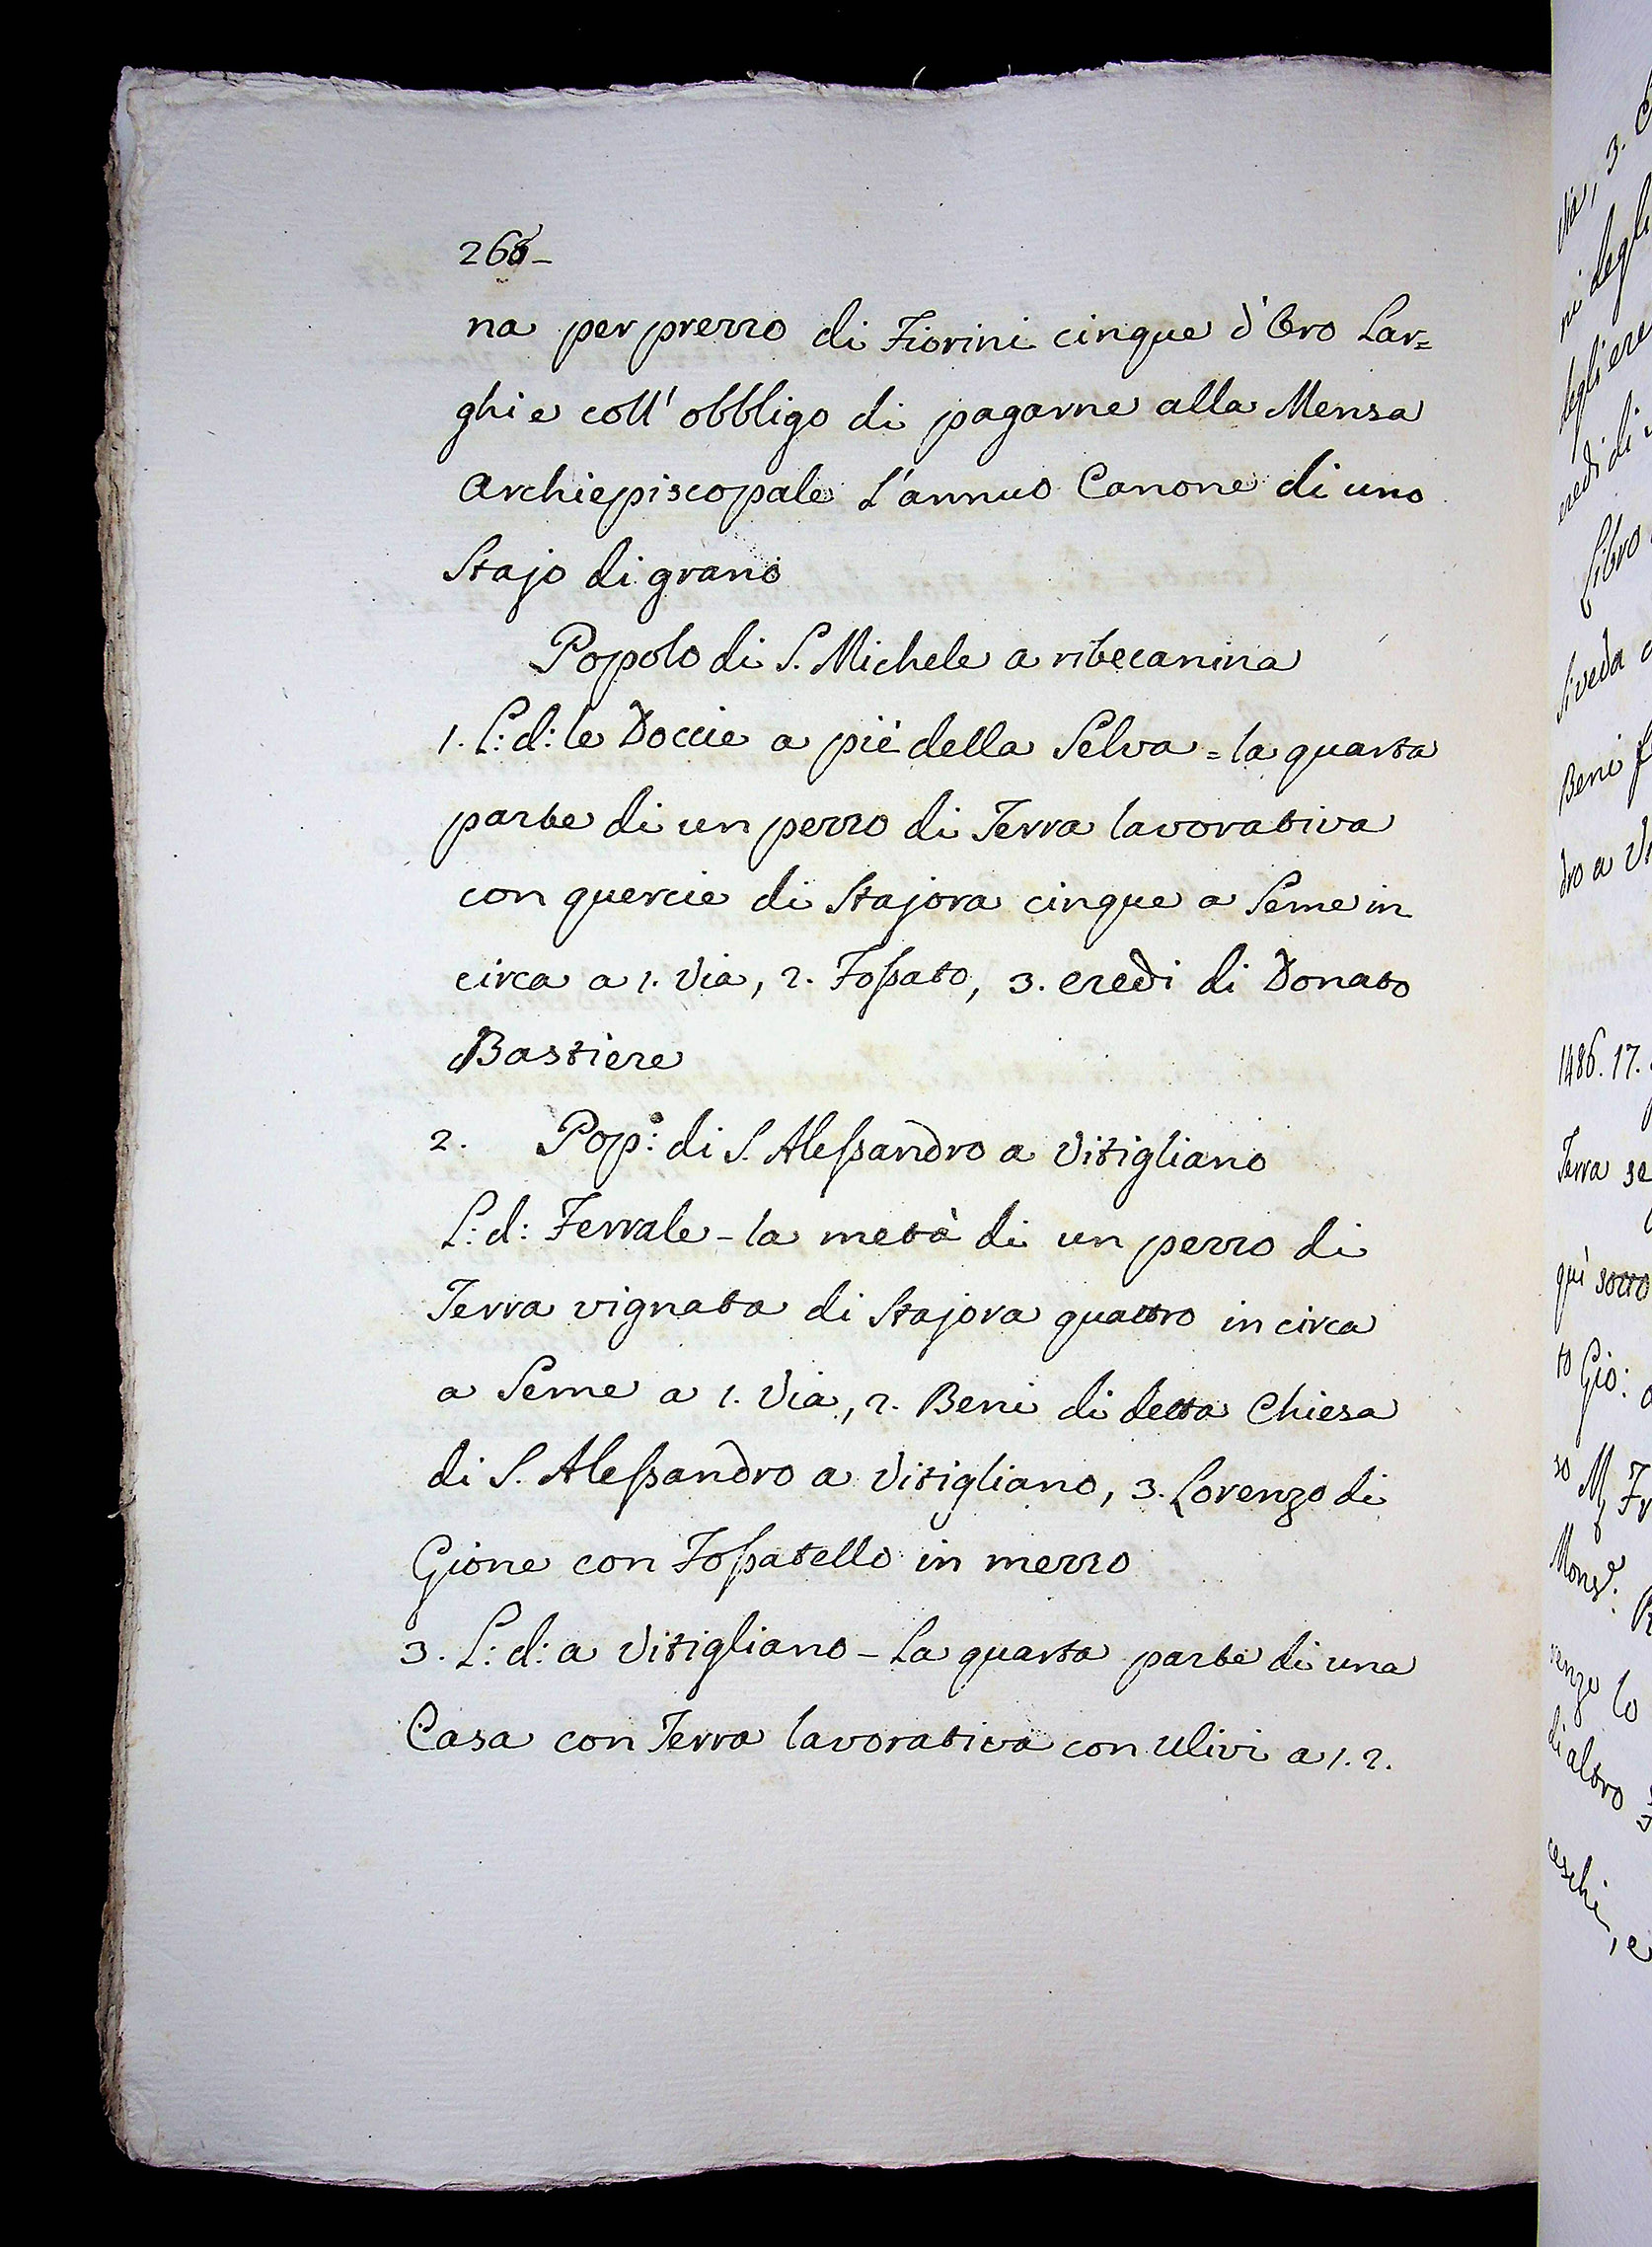 268-
na per prezzo di Fiorini cinque d'Oro Lar=
ghi e coll'obbligo di pagarne alla Mensa
Archiepiscopale L'annuo Canone di uno
Stajo di grano
Popolo di S. Michele a ribecanina
1. L: d: le Doccie a piè della Selva = la quarta
parte di un pezzo di Terra lavorativa
con quercie di Stajora cinque a Seme in
circa a 1. Via, 2. Fossato, 3. eredi di Donato
Bastiere
2. Pop.º: di S. Alessandro a Vitigliano
L: d: Ferrale - la metà di un pezzo di
Terra vignata di Stajora quattro in circa
a Seme a 1. Via, 2. Beni di detta Chiesa
di S. Alessandro a Vitigliano, 3. Lorenzo di
Gione con Fossatello in mezzo
3. L: d: a Vitigliano - La quarta parte di una
Casa con Terra lavorativa con ulivi a 1. 2.
via, 3.
ni degli
degli ere
eredi di
Libro
si veda
Beni
dro a Vi
1486. 17.
Terra se
quì sotto
to Gio:
so M Fr
Mons.e:
renzo lo
di altro
ceschi, e